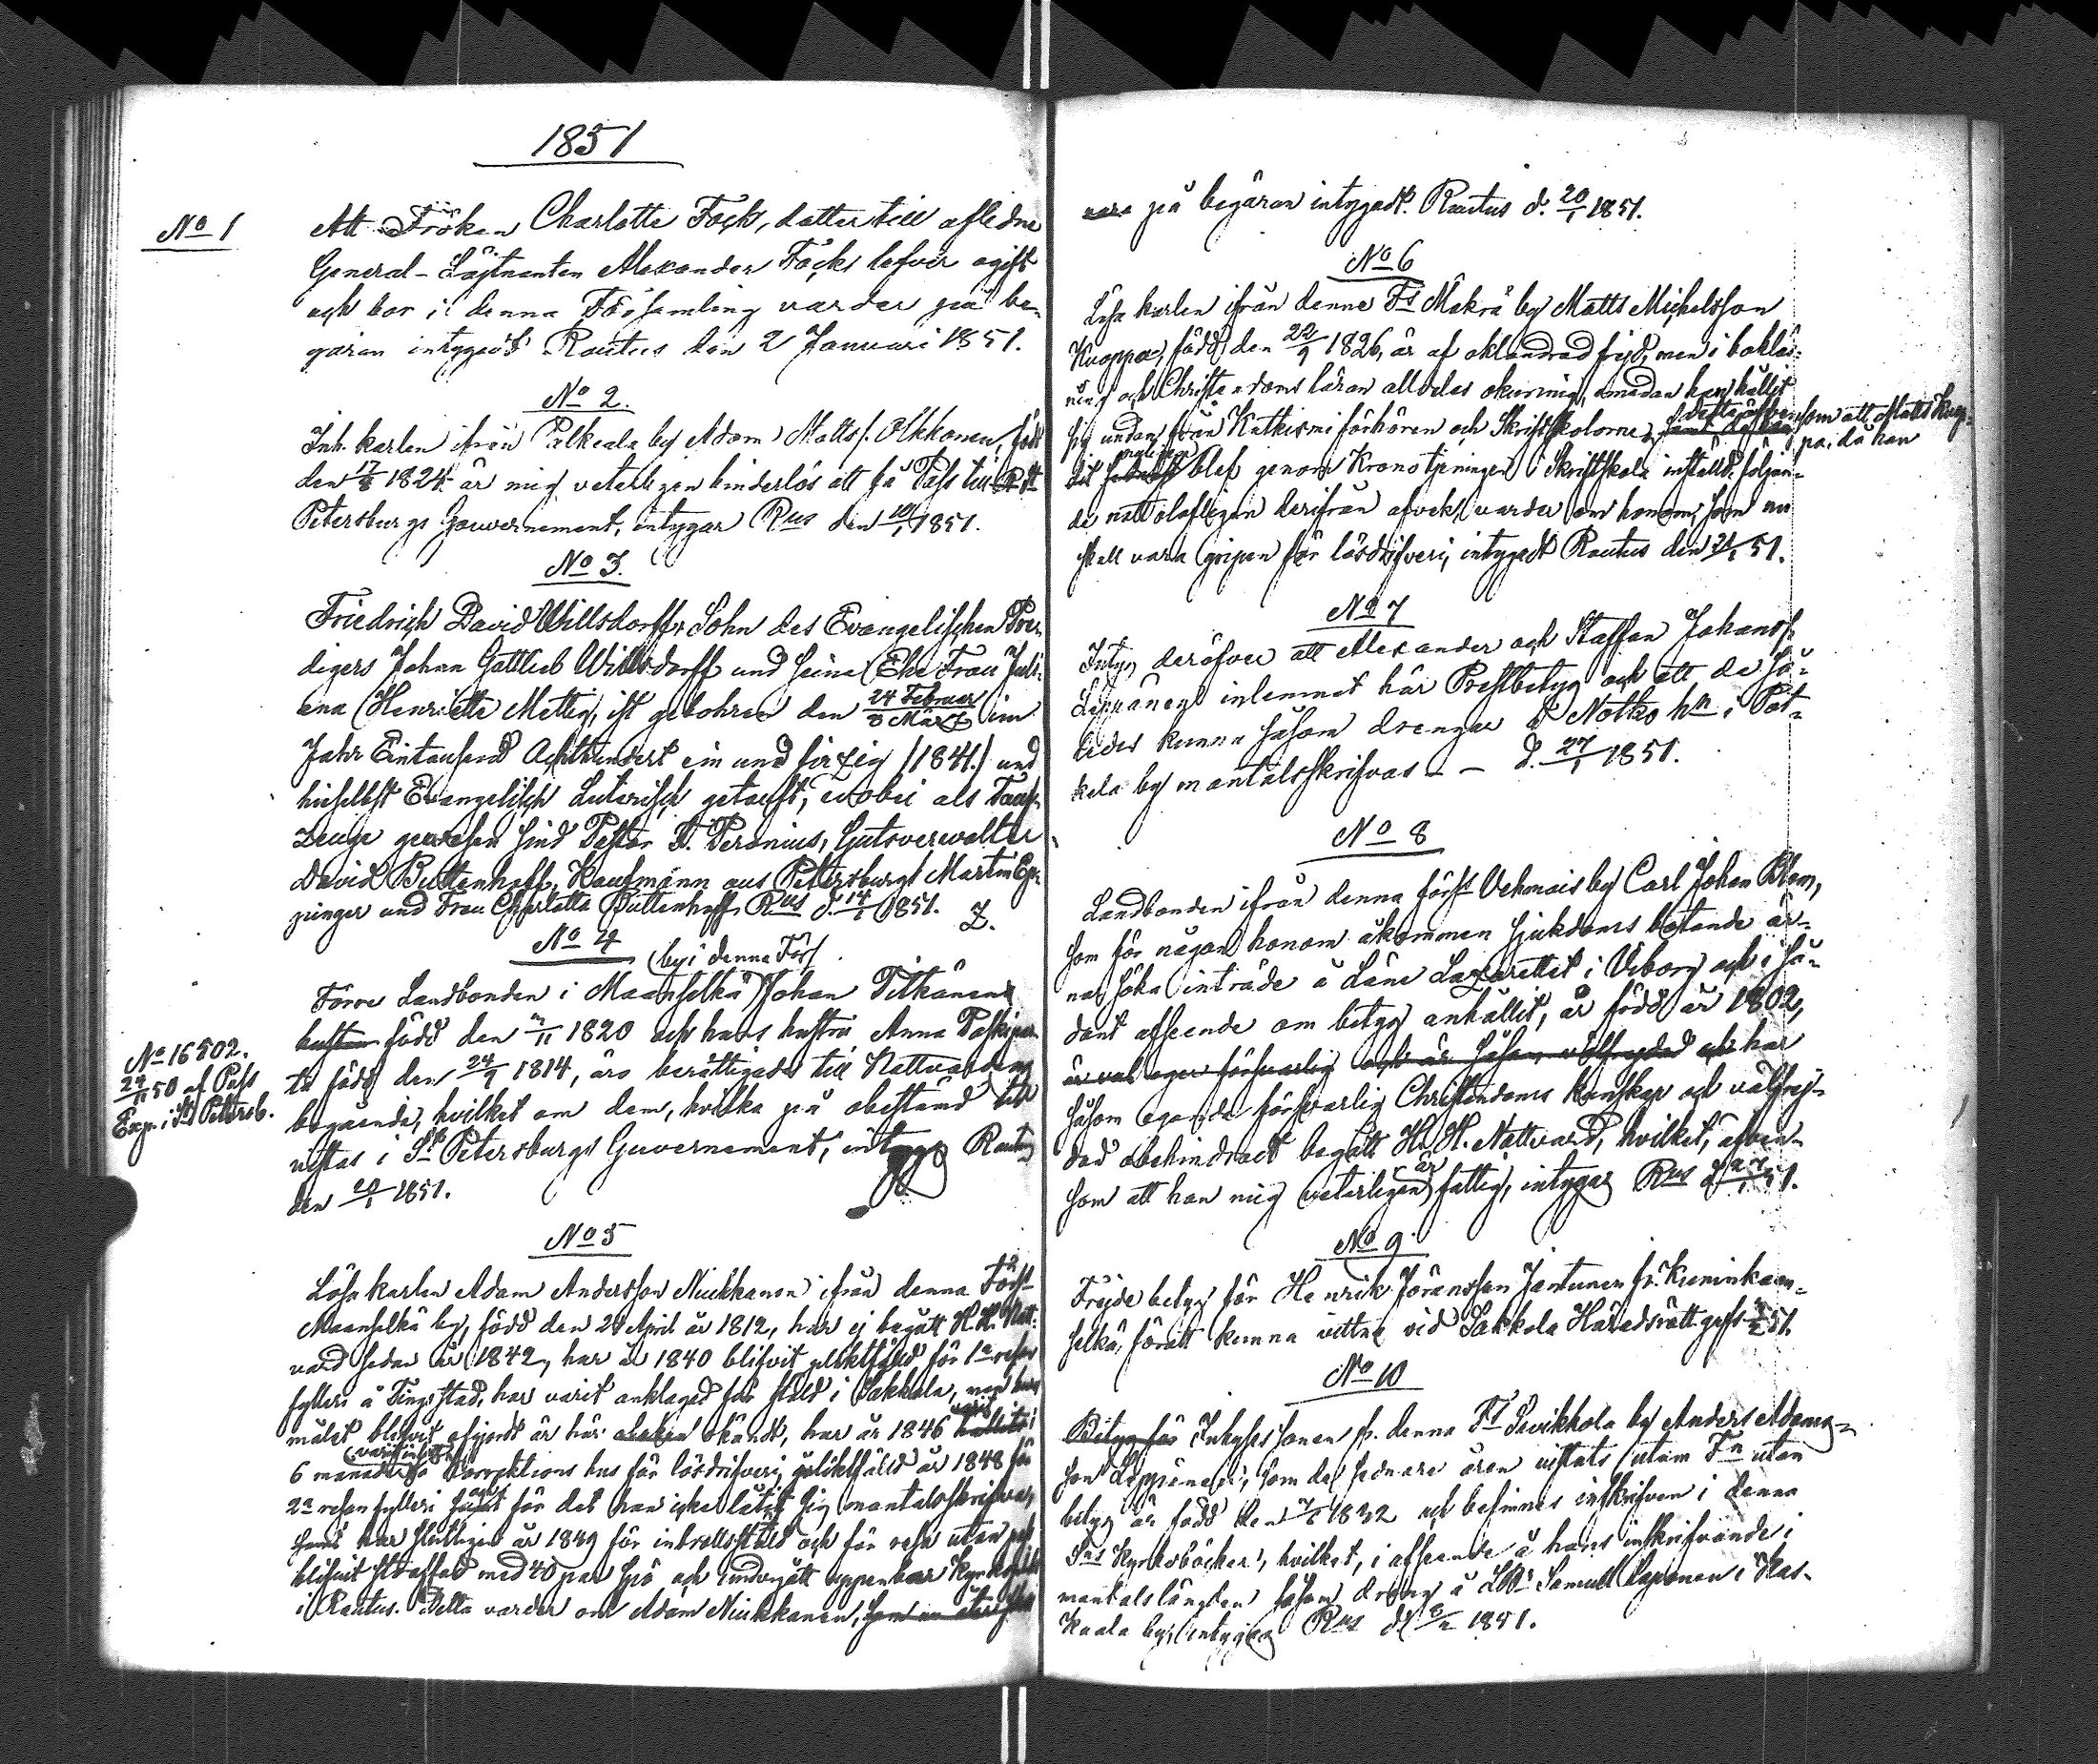 1851
No 1
Att Fröken Charlotte Fock, dotter till aflidne
General-Löjtnanten Alexander Focks lefver ogift
och bor i denna Församling varder på be-
gäran intygadt Rautus den 2 Januari 1851.
No 2.
Inh. karlen ifrån Palkeala by Adam Mattsf. Olkkonen, född
den 17/8 1824. är mig veterligen hinderlös att få Pass till St
Petersburgs Gouvernement, intygar Rus den 10/1 1851.
No 3.
Friedrich David Willsdorff, Sohn des Evangelischen Pre-
digers Johan Gottlieb Willsdorff und seine Ehe Frau Juli-
ana Henriette Mettig, ist gebohren den 24 Februar/8 März im
Jahr Eintausend Achthundert ein und firzig (1841.) und
hieselbst Evangelisch Luterisch getauft, wobei als Tauf-
zeuge gewesen sind Pastor Peronius, Gutsverwalter
David Buttenhoff, Kaufmann aus Petersburg Martin
und Frau Charlotta Buttenhoff. Rus d. 14/1 1851. Z.
No 4
by i denna Förs
Förre Landbonden i Maanselkä Johan Pitkänen
född den /11 1820 och hans hustru Anna
född den 24/9 1814, äro berättigade till Nattvardens
begående, hvilket om dem, hvilka på obestämd tid
vistas i St Petersburgs Guvernement, intygas Rautus
den 20/1 1851.
No 16502.
29/11 50 af Pass
Exp. i St Petersb.
No 5
Lösa karlen Adam Andersson Niukkanen ifrån denna Förs
Maanselkä by, född den 24 April år 1812, har ej begått H. H. Natt-
vard sedan år 1842, har år 1840 blifvit pliktfäld för 1a resan
fylleri å Tingsstad, har varit anklagad för stöld i Sakkola, men huru
målet blifvit afgjordt är här okändt, har år 1846 varit
6 månader å Korrektions hus för lösdrifveri, pliktfäld år 1848 för
2a resan fylleri samt för det han icke låtit sig mantalsskrifva,
har slutligen år 1849 för inbrottsstöld och för resa utan pass
blifvit straffad med 40 par spö och undergått uppenbar Kyrkoplikt
i Rautus. Detta varder om Adam Niukkanen,
på begäran intygadt. Rautus d. 20/1 1851.
No 6
Lösa karlen ifrån denna Fs Makrä by Matts Michelsson
Kuappa, född den 22/9 1826, är af oklandrad frejd, men i boklä-
ning och Christendoms läran alldeles okunnig, emedan han hållit
sig undan från Katkismi förhören och Skriftskolorne, detta äfven som att Matts Kuap-
pa, då han
blef genom Kronotjeningen i Skriftskola instäld, följan-
de natt olofligen derifrån afvek, varder om honom, som nu
skall vara gripen för lösdrifveri, intygadt Rautus den 21/1 51.
No 7
Intyg deröfver att Alexander och Staffan Johansf.
Leppänen inlemnat här Prestbetyg och att de så-
ledes kunna såsom drengar å Notko hn i Pot-
kela by mantalsskrifvas - - d. 27/1 1851.
No 8
Landbonden ifrån denna förs Vehmais by Carl Johan Blom,
som för någon honom åkommen sjukdoms botande är-
nar söka inträde å Läne Lazarettet i Viborg och i så-
dant afseende om betyg anhållit, är född år 1802,
är val eger försvarlig och är såsom välfrejdad och har
såsom egande försvarlig Christendoms kunskap och välfrej-
dad obehindradt begått H. H. Nattvard, hvilket, äfven-
som att han mig veterligen är fattig, intygar Rus d 27/1 51.
No 9
Frejde betyg för Henrik Jöransson Jantunen fr. Kuninkaan-
selkä, för att kunna vittna vid Sakkola Häradsrätt 51.
No 10
Betyg för Inhyses sonen fr. denna Fs Sirkkola by Anders Adams-
son Leppänen, som de sednare åren vistats utom Fn utan
betyg är född den 1832 och befinnes inskrifven i denna
Fns Kyrkoböcker, hvilket, i afseende å hans inskrifvande i
mantalslängden såsom dreng å Samuel Paponen i
by, intygas Rus d 1851.